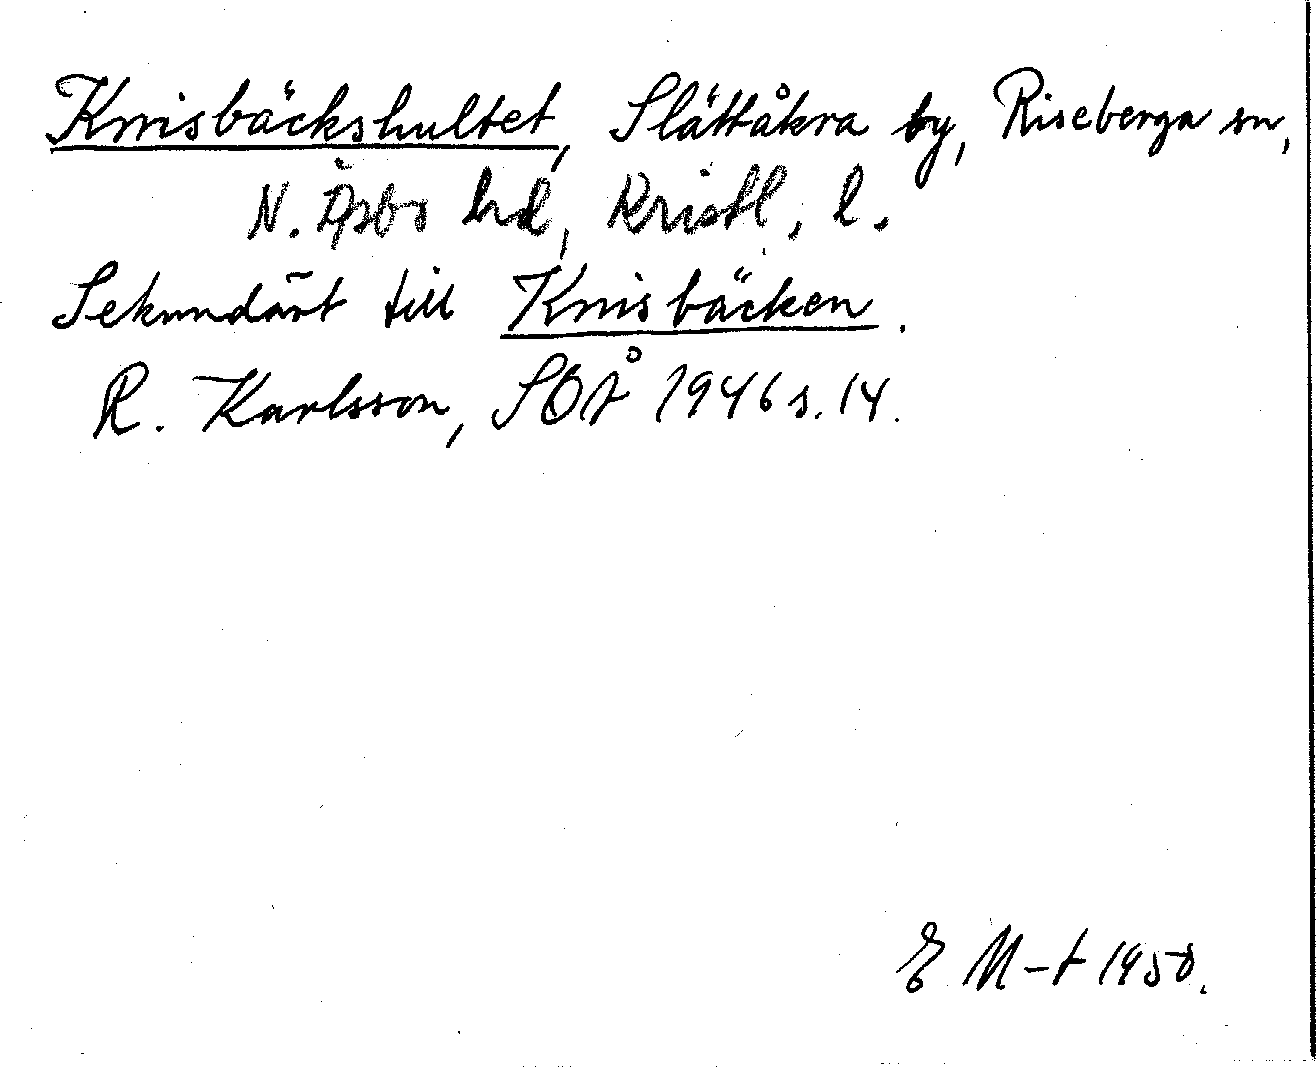 Knisbäckshultet, Slättåkra by, Riseberga sn,
N. Åsbo hd, Kristl. l.
Sekundärt till Knisbäcken.
R. Karlsson, SOÅ 1946 s. 14.
E M-t 1950.